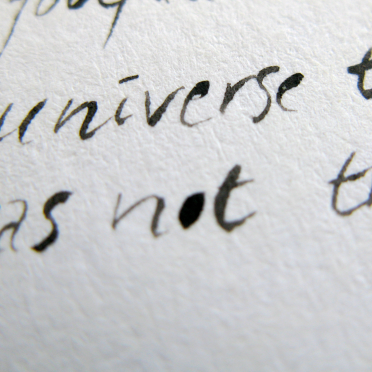 universe t
as not th